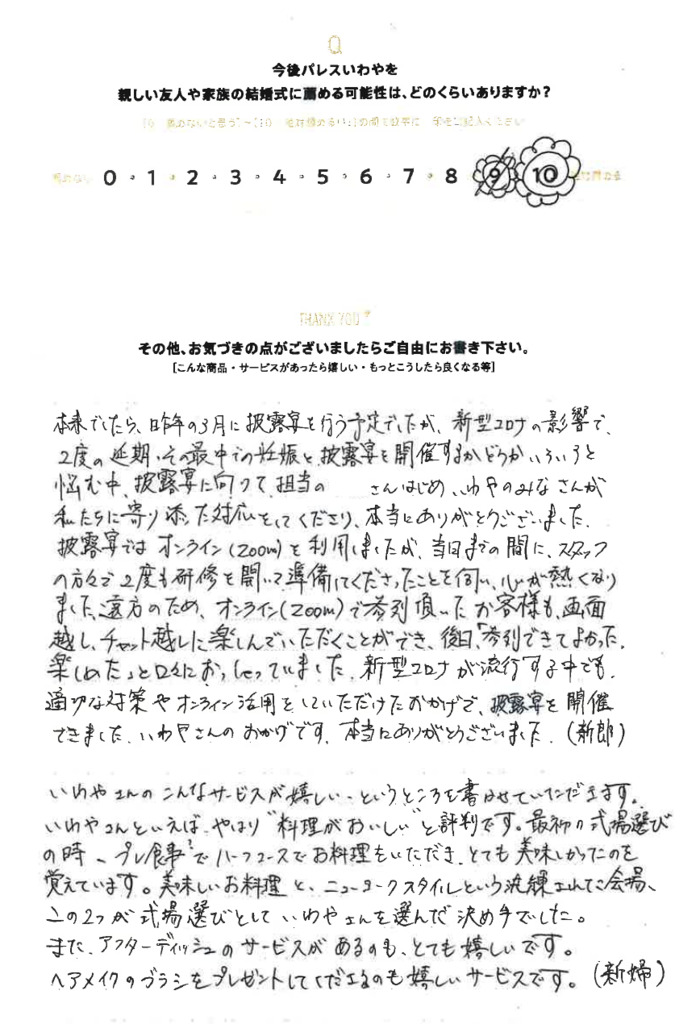 Q
今後パレスいわやを
親しい友人や家族の結婚式に薦める可能性は、どのくらいありますか？
0 1 2 3 4 5 6 7 8 9 10
THANK YOU
その他、お気づきの点がございましたらご自由にお書き下さい。
[こんな商品・サービスがあったら嬉しい・もっとこうしたら良くなる等]
本来でしたら、昨年の3月に披露宴を行う予定でしたが、新型コロナの影響で、
2度の延期、その最中での妊娠と披露宴を開催するかどうかいろいろと
悩む中、披露宴に向けて、担当の さんはじめ、いわやのみなさんが
私たちに寄り添った対応をしてくださり、本当にありがとうございました。
披露宴ではオンライン(Zoom)を利用しましたが、当日までの間に、スタッフ
の方々で2度も研修を開いて準備してくださったことを伺い、心が熱くなり
ました。遠方のため、オンライン(Zoom)で参列頂いたお客様も、画面
越し、チャット越しに楽しんでいただくことができ、後日、「参列できてよかった。
楽しめた」と口々におっしゃっていました。新型コロナが流行する中でも、
適切な対策やオンライン活用をしていただけたおかげで、披露宴を開催
できました。いわやさんのおかげです。本当にありがとうございました。(新郎)
いわやさんのこんなサービスが嬉しい、というところを書かせていただきます。
いわやさんといえば、やはり“料理がおいしい”と評判です。最初の式場選び
の時、プレ食事でハーフコースでお料理をいただき、とても美味しかったのを
覚えています。美味しいお料理と、ニューヨークスタイルという洗練された会場、
この2つが式場選びとしていわやさんを選んだ決め手でした。
また、アフターディッシュのサービスがあるのも、とても嬉しいです。
ヘアメイクのブラシをプレゼントしてくださるのも嬉しいサービスです。(新婦)